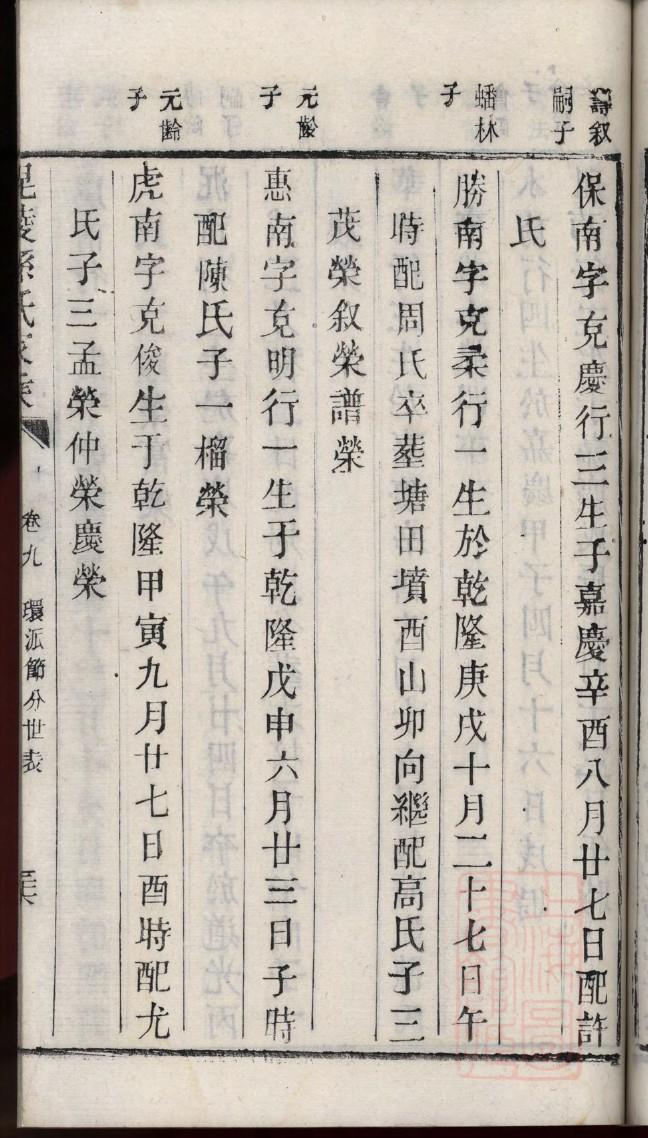 壽叙
嗣子
保南字克慶行三生于嘉慶辛酉八月廿七日配許
氏
蟠林
子
勝南字克柔行一生於乾隆庚戌十月二十七日午
時配周氏卒塟塘田墳酉山卯向繼配高氏子三
茂榮叙榮譜榮
元齡
子
惠南字克明行一生于乾隆戊申六月廿三日子時
配陳氏子一榴榮
元齡
子
虎南字克俊生于乾隆甲寅九月廿七日酉時配尤
氏子三孟榮仲榮慶榮
毘陵孫氏家乗 卷九 環派節分世表